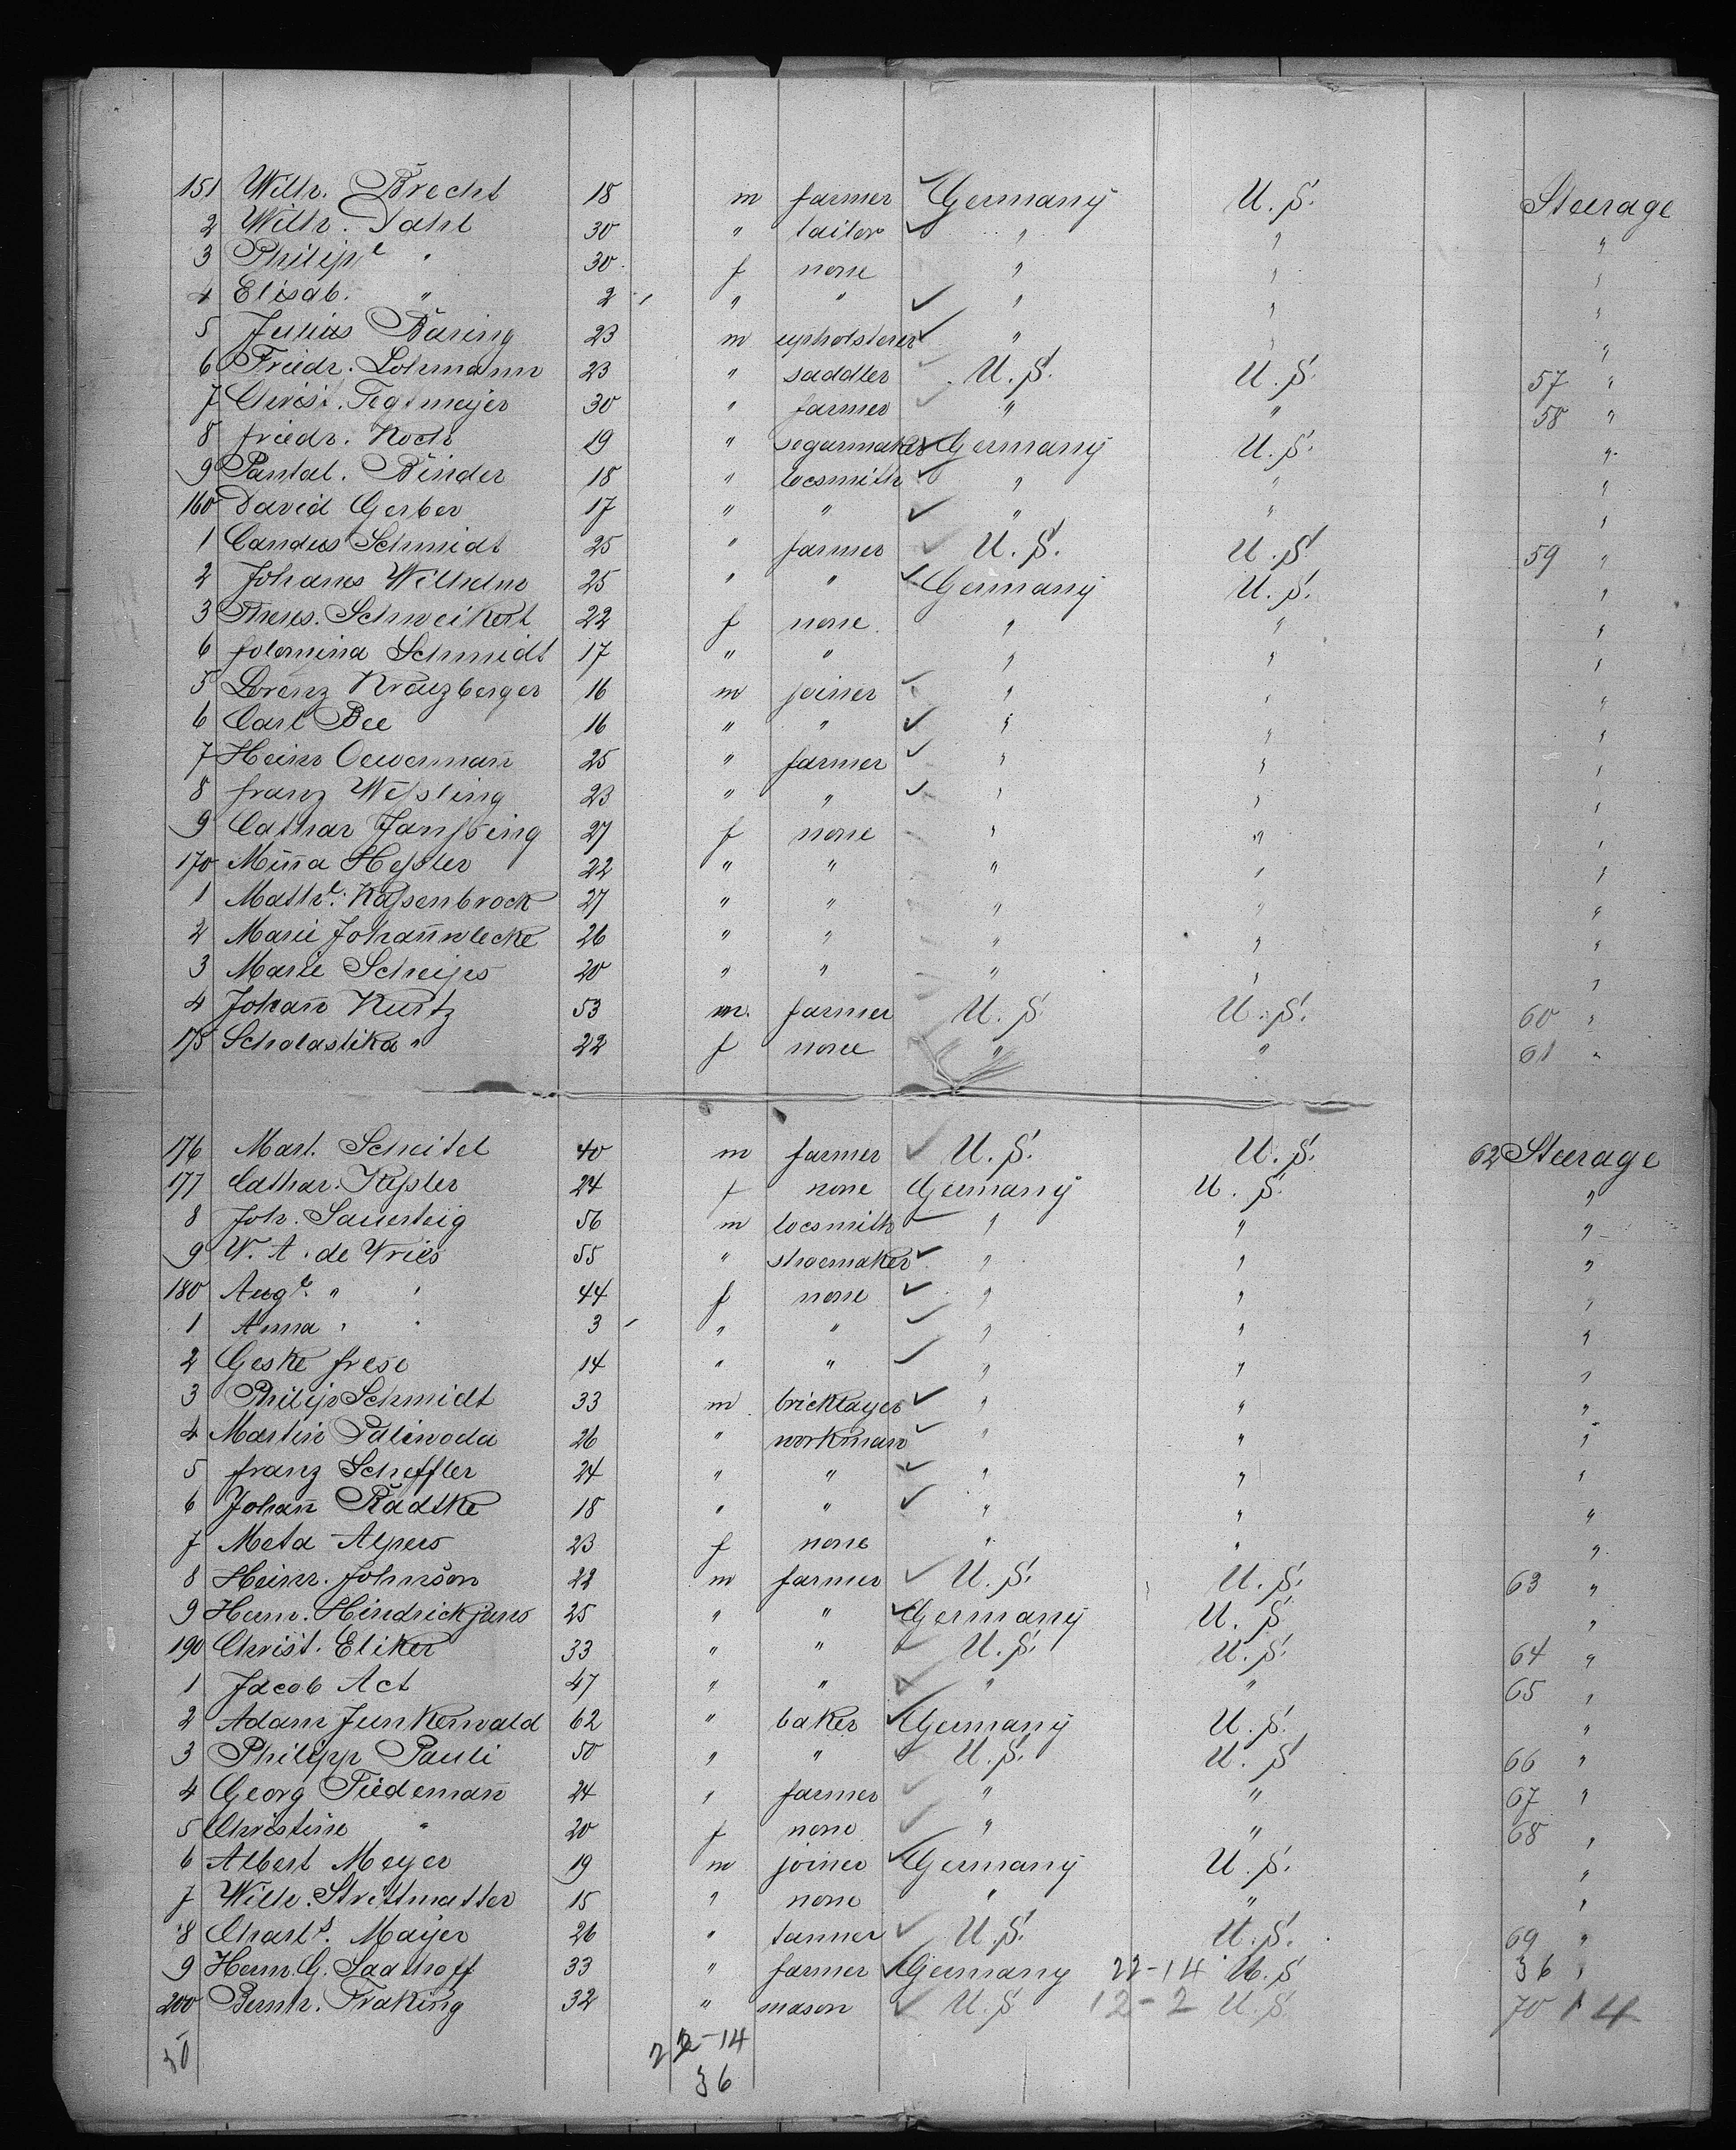 151 Wilh. Brecht 18 m farmer Germany U. S. Steerage
2 Wilh. Dahl 30 " tailor " " "
3 Philip^e " 30 f none " " "
4 Elisab. " 2 " " " " "
5 Julius Båring 23 m upholsterer " " "
6 Friedr. Lohmann 23 " saddler U. S. U. S. 57 "
7 Christ. Tegtmeyer 30 " farmer " " 58 "
8 Friedr. Koch 19 " segarmaker Germany U. S. "
9 Pantal. Binder 18 " locsmith " " "
160 David Gerber 17 " " " " "
1 Candus Schmidt 25 " farmer U. S. U. S. 59 "
2 Johanes Wilhelm 25 " " Germany U. S. "
3 Theres. Schweikert 22 f none " " "
6 Filomina Schmidt 17 " " " " "
5 Lorenz Kreuzberger 16 m joiner " " "
6 Carl Bee 16 " " " " "
7 Heinr Oewermañ 25 " farmer " " "
8 Franz Weſsling 23 " " " " "
9 Cathar Janſsing 27 f none " " "
170 Miña Heſsler 22 " " " " "
1 Math^e. Kaſsenbrock 27 " " " " "
2 Marie Johañwlecke 26 " " " " "
3 Marie Scheips 20 " " " " "
4 Johañ Kurtz 53 m. farmer U. S. U. S. 60 "
175 Scholastika " 22 f none " " 61 "
176 Mart. Scheitel 40 m farmer U. S. U. S. 62 Steerage
177 Cathar. Keſsler 24 f none Germany U. S. "
8 Joh. Sauerteig 56 m locsmith " " "
9 W. A. de Vries 55 " shoemaker " " "
180 Aug^e. " " 44 f none " " "
1 Anna " " 3 " " " " "
2 Geske Frese 14 " " " " "
3 Philip Schmidt 33 m bricklayer " " "
4 Martin Paliwoda 26 " workman " " "
5 Franz Scheffler 24 " " " " "
6 Johañ Radtke 18 " " " " "
7 Meta Alpers 23 f none " " "
8 Heinr. Johnson 22 m farmer U. S. U. S. 63 "
9 Herm. Hindrickjans 25 " " Germany U. S. "
190 Christ. Eliker 33 " " U. S. U. S. 64 "
1 Jacob Act 47 " " " " 65 "
2 Adam Junkerwald 62 " baker Germany U. S. "
3 Philipp Pauli 50 " " U. S. U. S. 66 "
4 Georg Tiedemañ 24 " farmer " " 67 "
5 Christine " 20 f none " " 68 "
6 Albert Meyer 19 m joiner Germany U. S. "
7 Wilh. Strittmatter 15 " none " " "
8 Charl^s. Mayer 26 " tanner U. S. U. S. 69 "
9 Herm. G. Saathoff 33 " farmer Germany 22-14 U. S. 36 "
200 Bernh. Fraking 32 " mason U. S. 12-2 U. S. 70 14
50 22-14
36